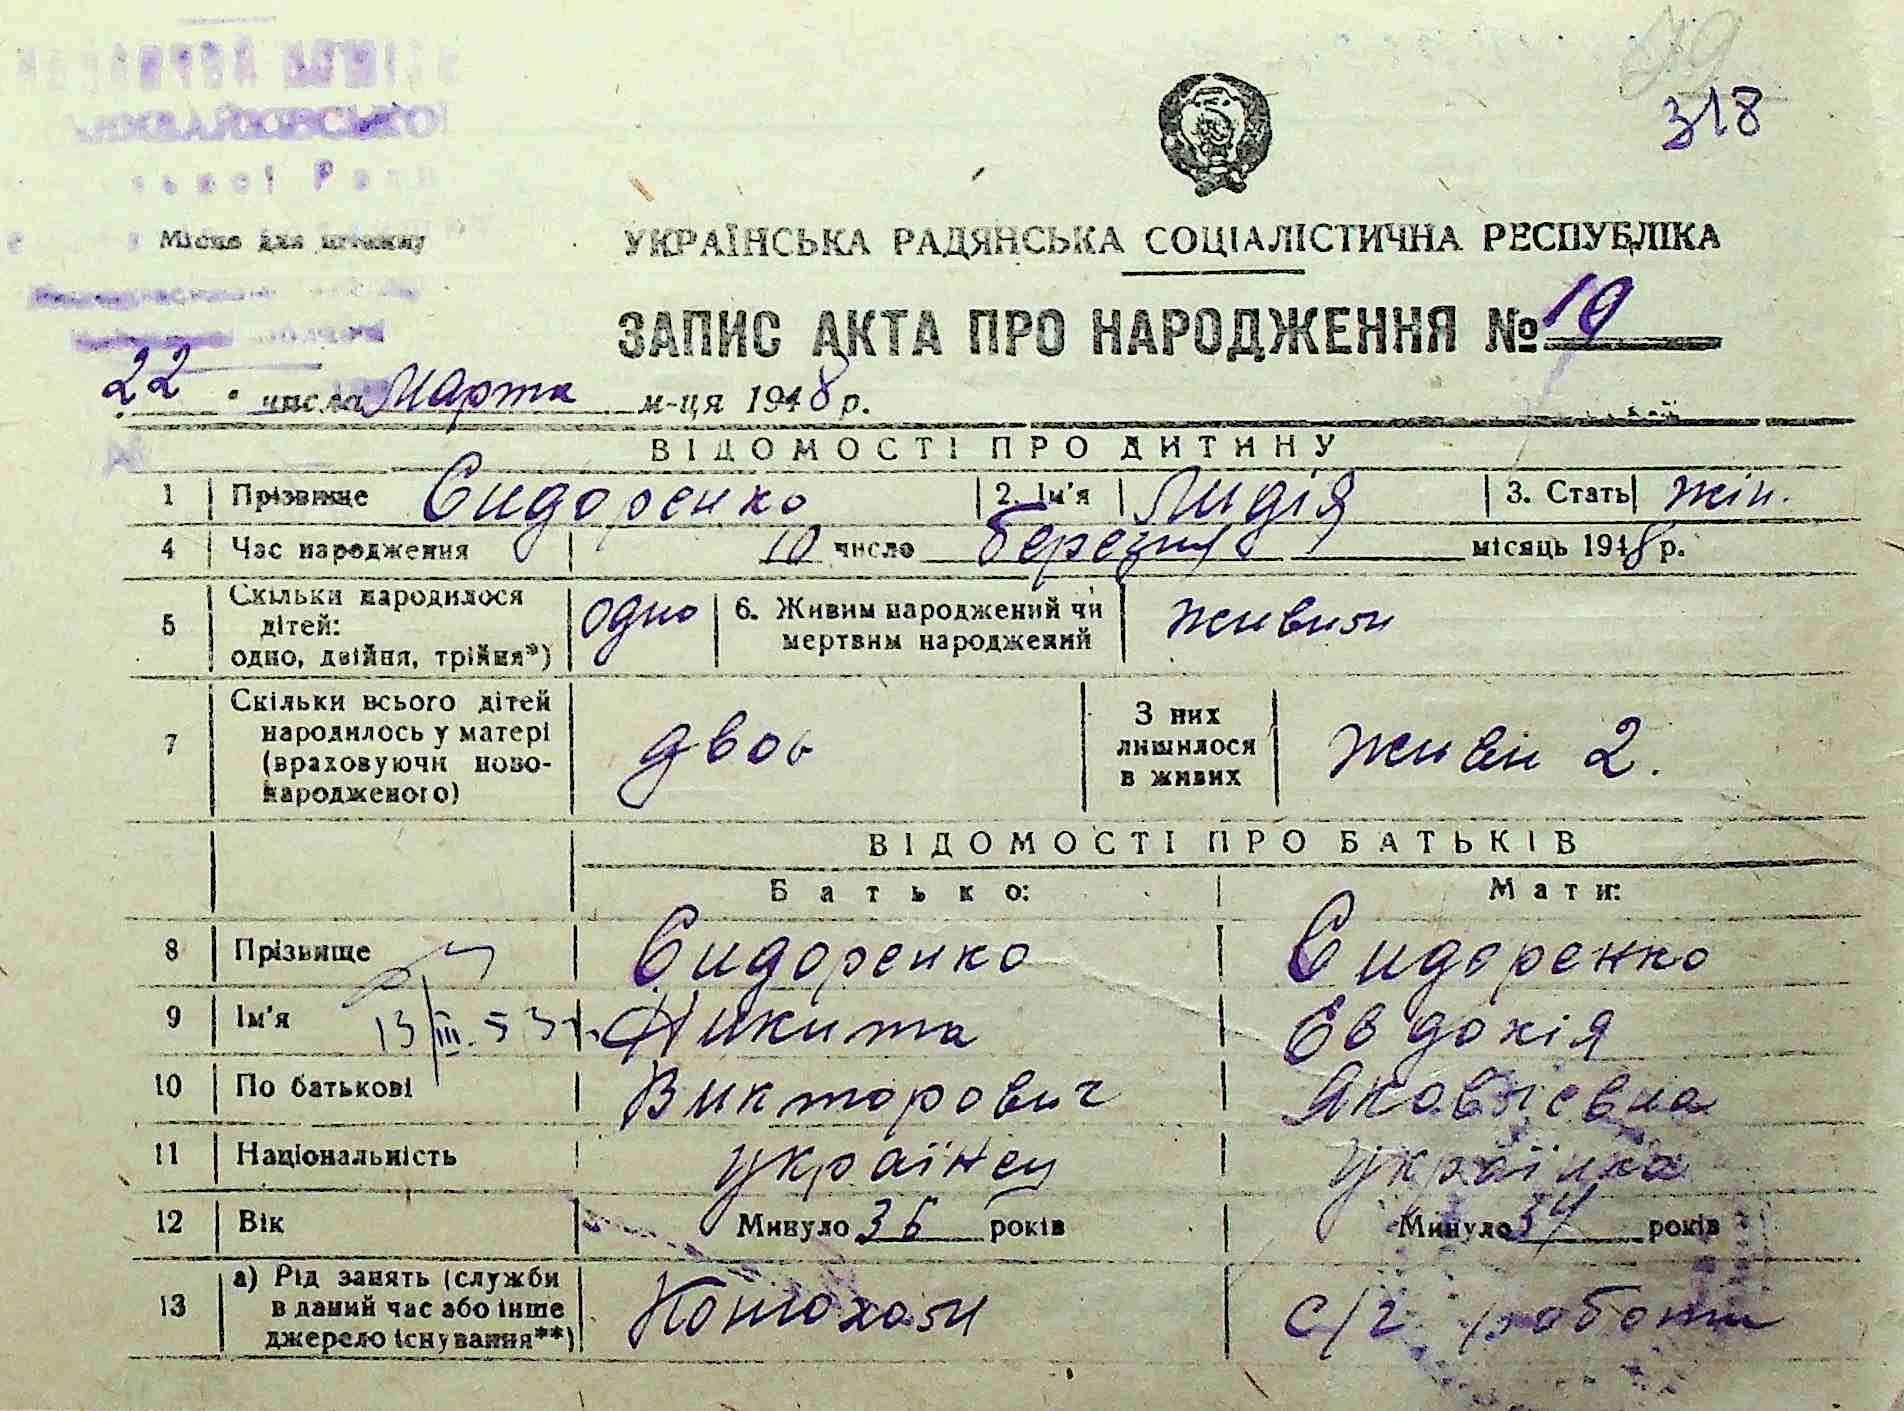 19
318
МИХАЙЛІВСЬКОЇ
Місце для штампу
УКРАЇНСЬКА РАДЯНСЬКА СОЦІАЛІСТИЧНА РЕСПУБЛІКА
ЗАПИС АКТА ПРО НАРОДЖЕННЯ № 19
22 числа Марта м-ця 1948 р.
ВІДОМОСТІ ПРО ДИТИНУ
1 Прізвище Сидоренко 2. Ім'я Лидія 3. Стать жін.
4 Час народження 10 число березня місяць 1948 р.
5 Скільки народилося дітей: одно, двійня, трійня*) одно 6. Живим народжений чи мертвим народжений живим
7 Скільки всього дітей народилось у матері (враховуючи новонародженого) двоє З них лишилося в живих живи 2.
ВІДОМОСТІ ПРО БАТЬКІВ
Батько: Мати:
8 Прізвище Сидоренко Сидоренко
9 Ім'я 13/III.53 Никита Евдокія
10 По батькові Викторович Яковлевна
11 Національність українец українка
12 Вік Минуло 36 років Минуло 34 років
13 а) Рід занять (служби в даний час або інше джерело існування**) Конюхом с/г робота